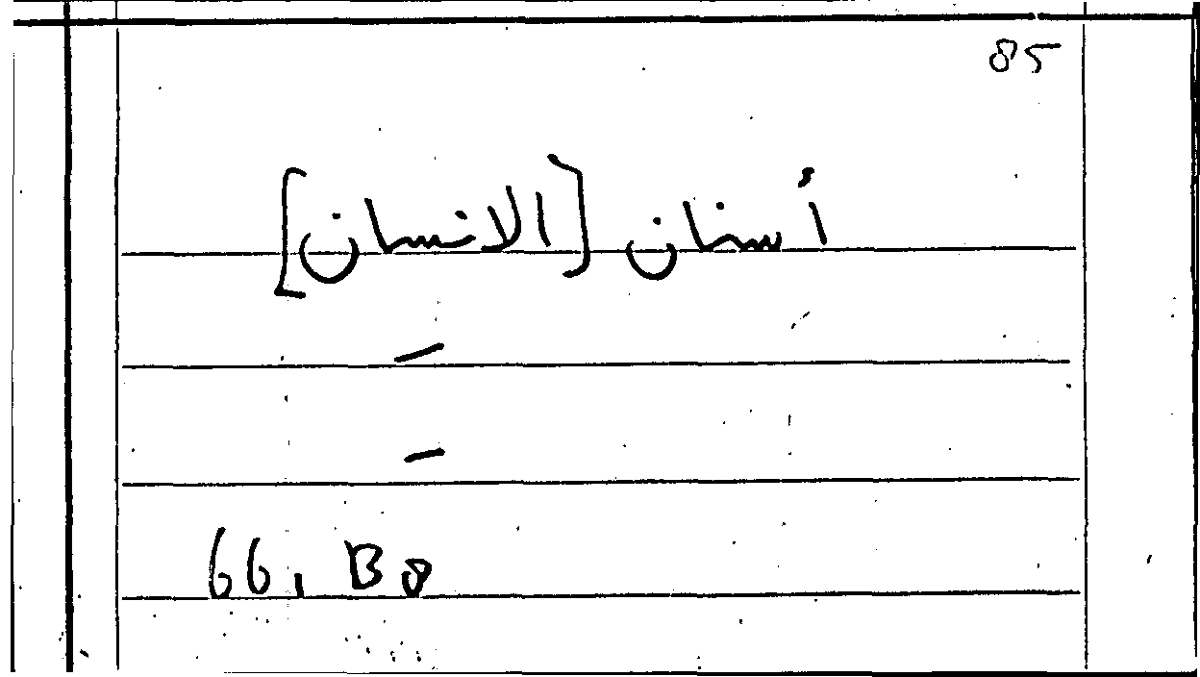 85
أسنان [الانسان]
–
–
66, B8